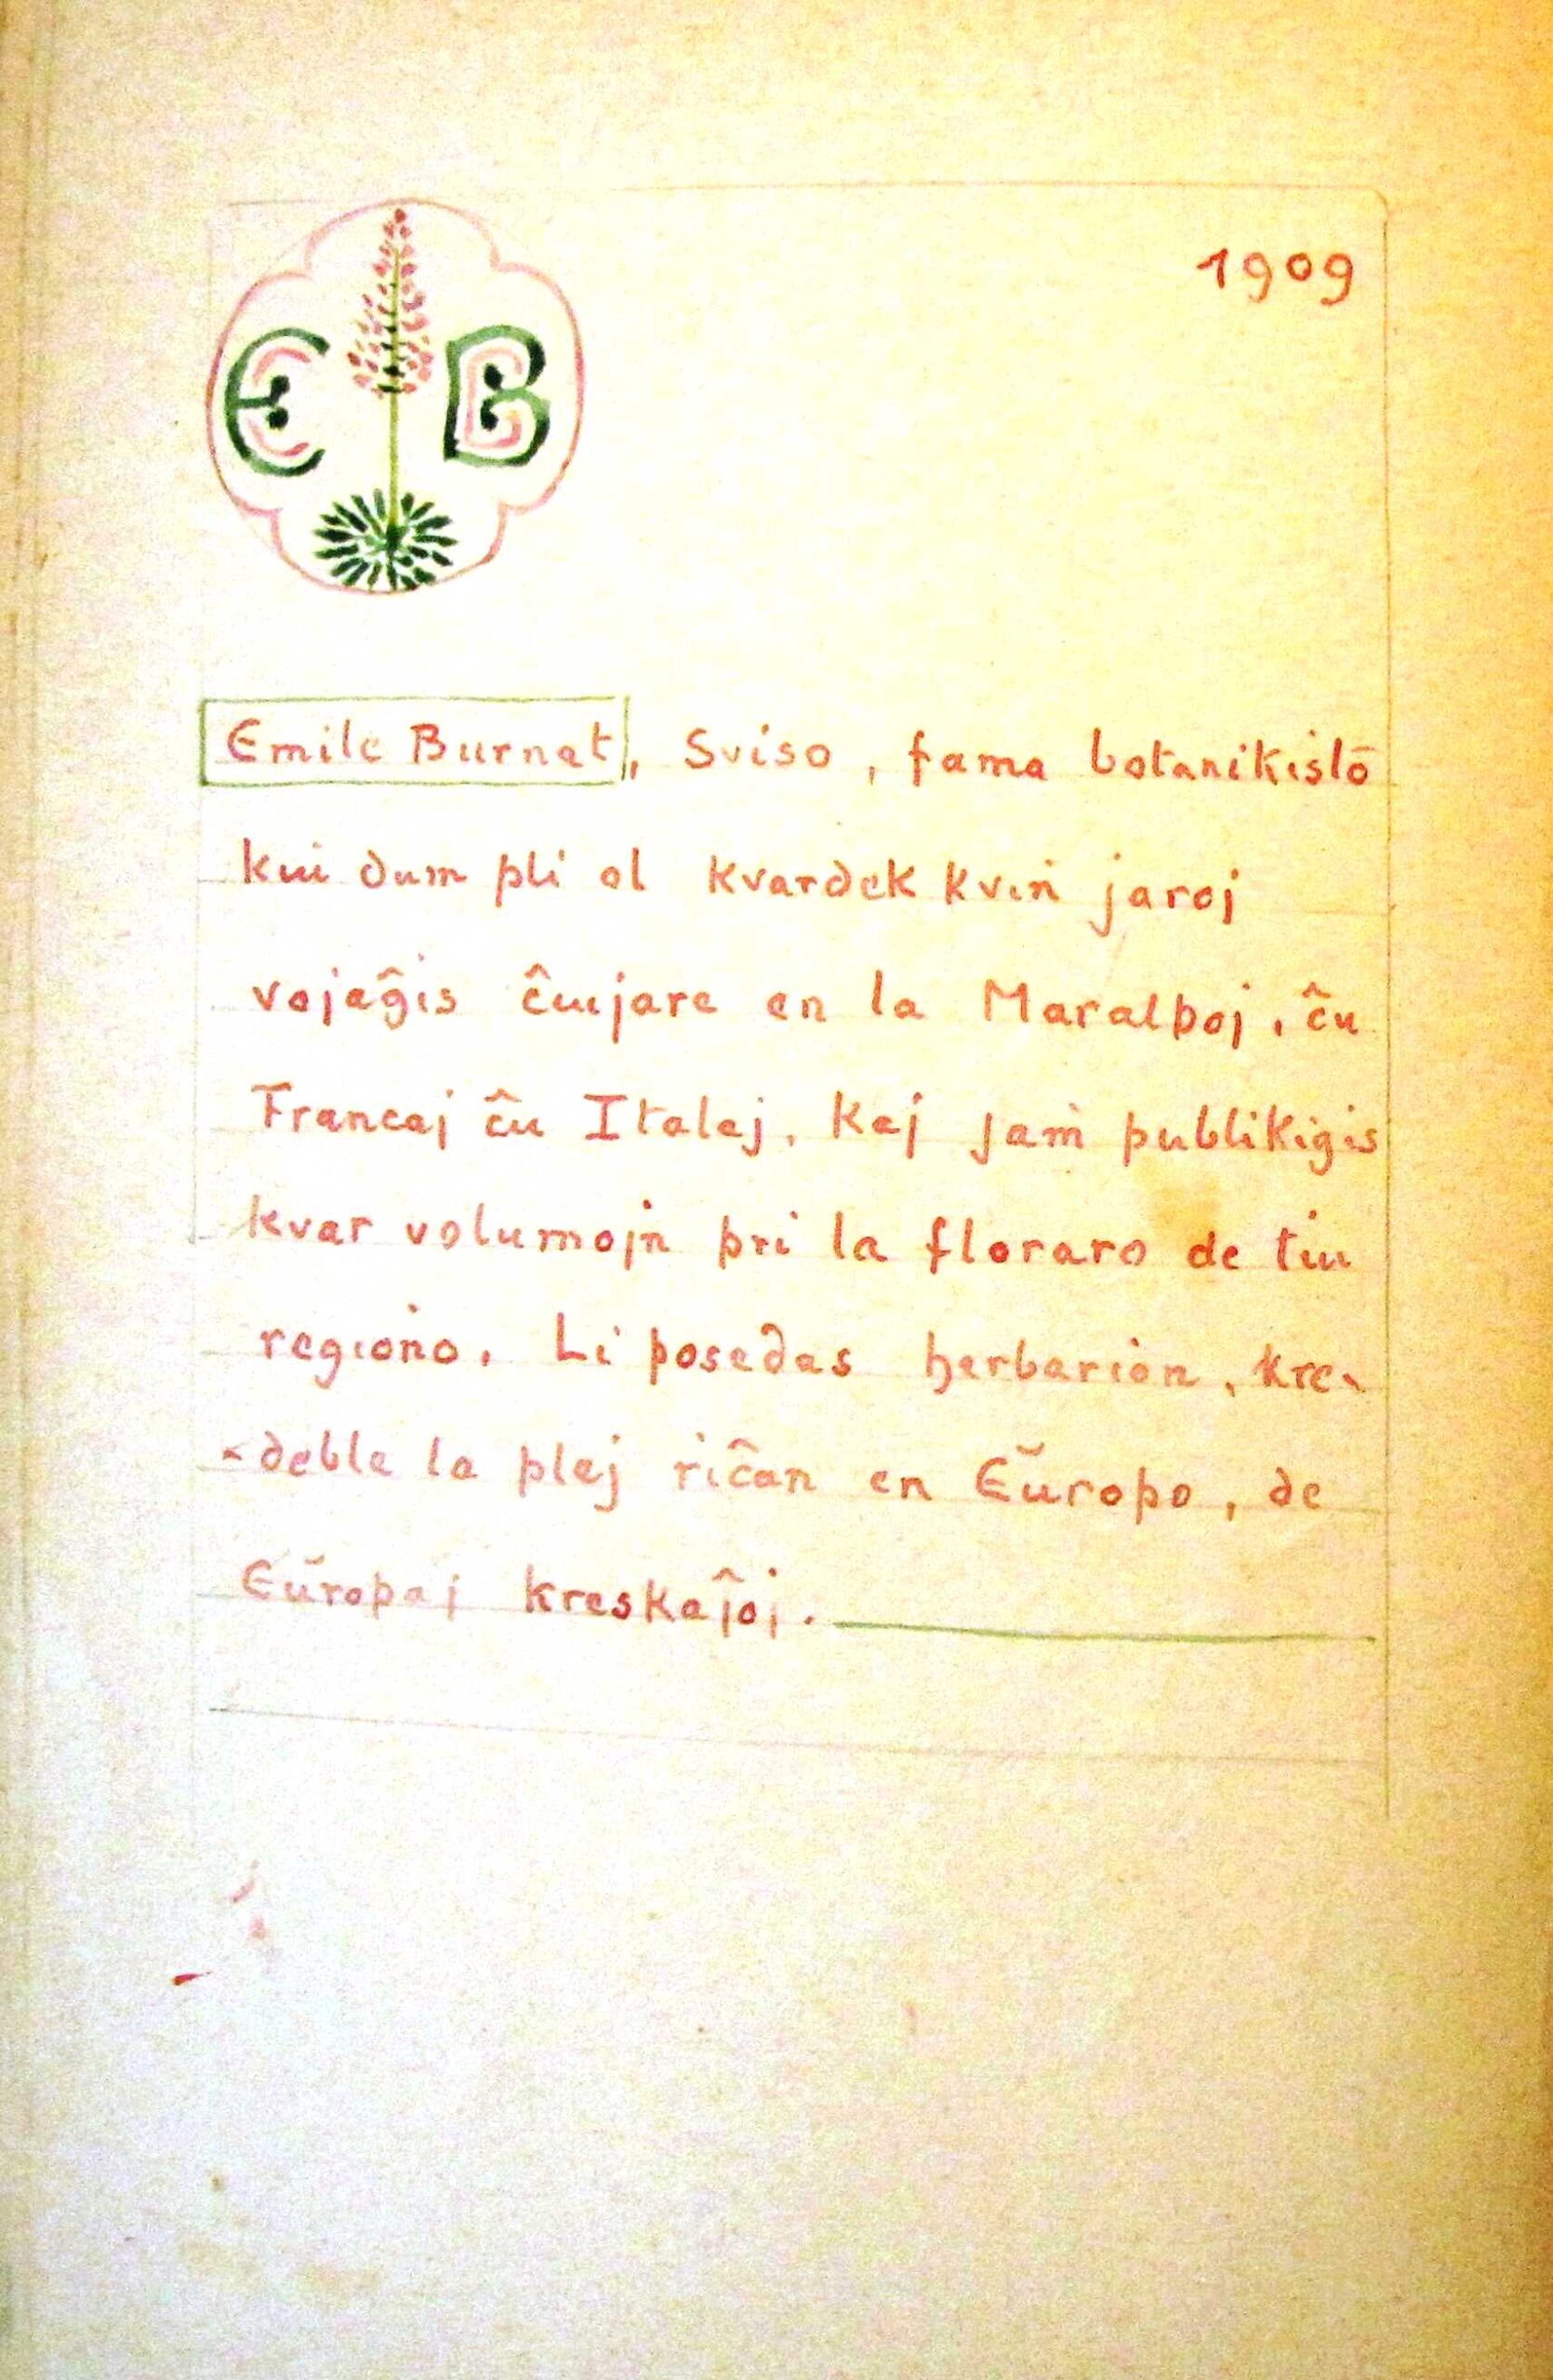 1909
E B
Emile Burnat, Sviso, fama botanikisto
kiu dum pli ol kvardek kvin jaroj
vojaĝis ĉiujare en la Maralpoj, ĉu
Francaj ĉu Italaj, kaj jam publikigis
kvar volumojn pri la floraro de tiu
regiono. Li posedas herbarion, kre-
-deble la plej riĉan en Eŭropo, de
Eŭropaj kreskaĵoj.